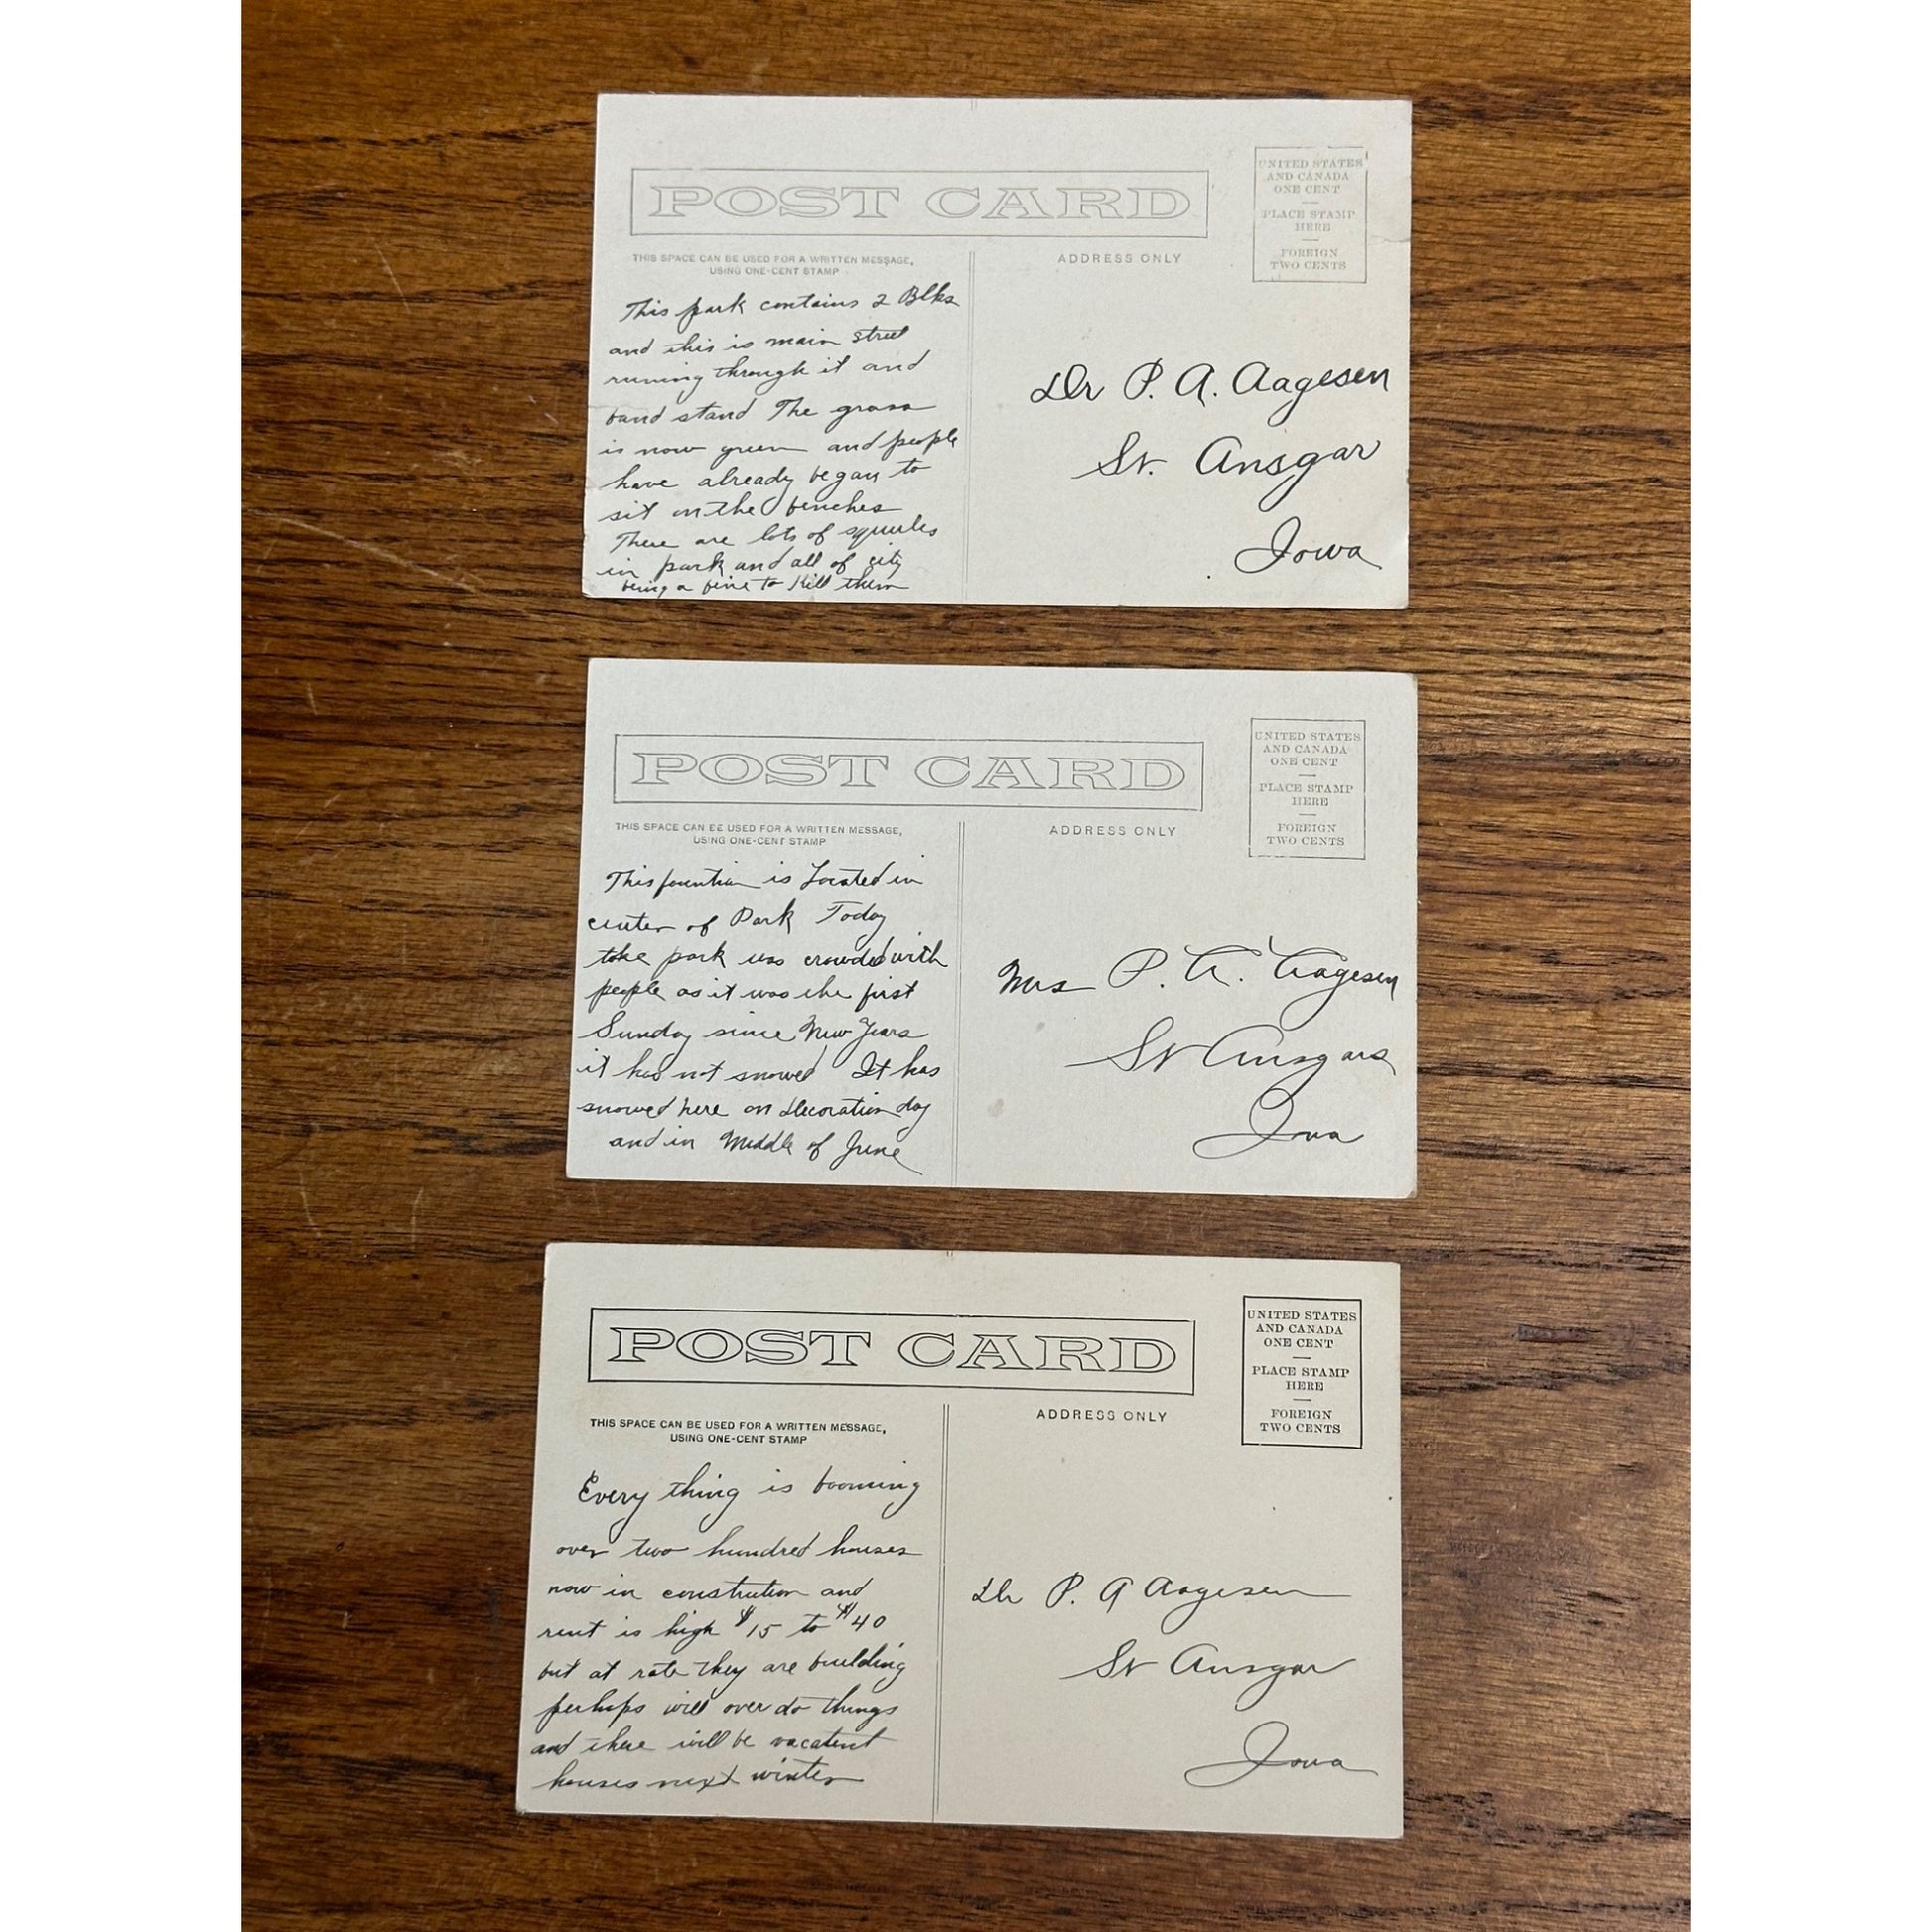 POST CARD
UNITED STATES
AND CANADA
ONE CENT
PLACE STAMP
HERE
FOREIGN
TWO CENTS
THIS SPACE CAN BE USED FOR A WRITTEN MESSAGE,
USING ONE-CENT STAMP
ADDRESS ONLY
This park contains 2 Blks
and this is main street
running through it and
band stand The grass
is now green and people
have already began to
sit on the benches
There are lots of squirles
in park and all of city
being a fine to Kill them
Dr P. A. Aagesen
St. Ansgar
Iowa
POST CARD
UNITED STATES
AND CANADA
ONE CENT
PLACE STAMP
HERE
FOREIGN
TWO CENTS
THIS SPACE CAN BE USED FOR A WRITTEN MESSAGE,
USING ONE-CENT STAMP
ADDRESS ONLY
This fountian is Located in
center of Park Today
the park was crowded with
people as it was the first
Sunday since New Years
it had not snowed It has
snowed here on Decoration day
and in Middle of June
Mrs P. A. Aagesen
St Ansgars
Iowa
POST CARD
UNITED STATES
AND CANADA
ONE CENT
PLACE STAMP
HERE
FOREIGN
TWO CENTS
THIS SPACE CAN BE USED FOR A WRITTEN MESSAGE,
USING ONE-CENT STAMP
ADDRESS ONLY
Every thing is booming
over two hundred houses
now in constrution and
rent is high $15 to $40
but at rate they are building
perhaps will over do things
and there will be vacatent
houses next winter
Dr P. A Aagesen
St Ansgar
Iowa